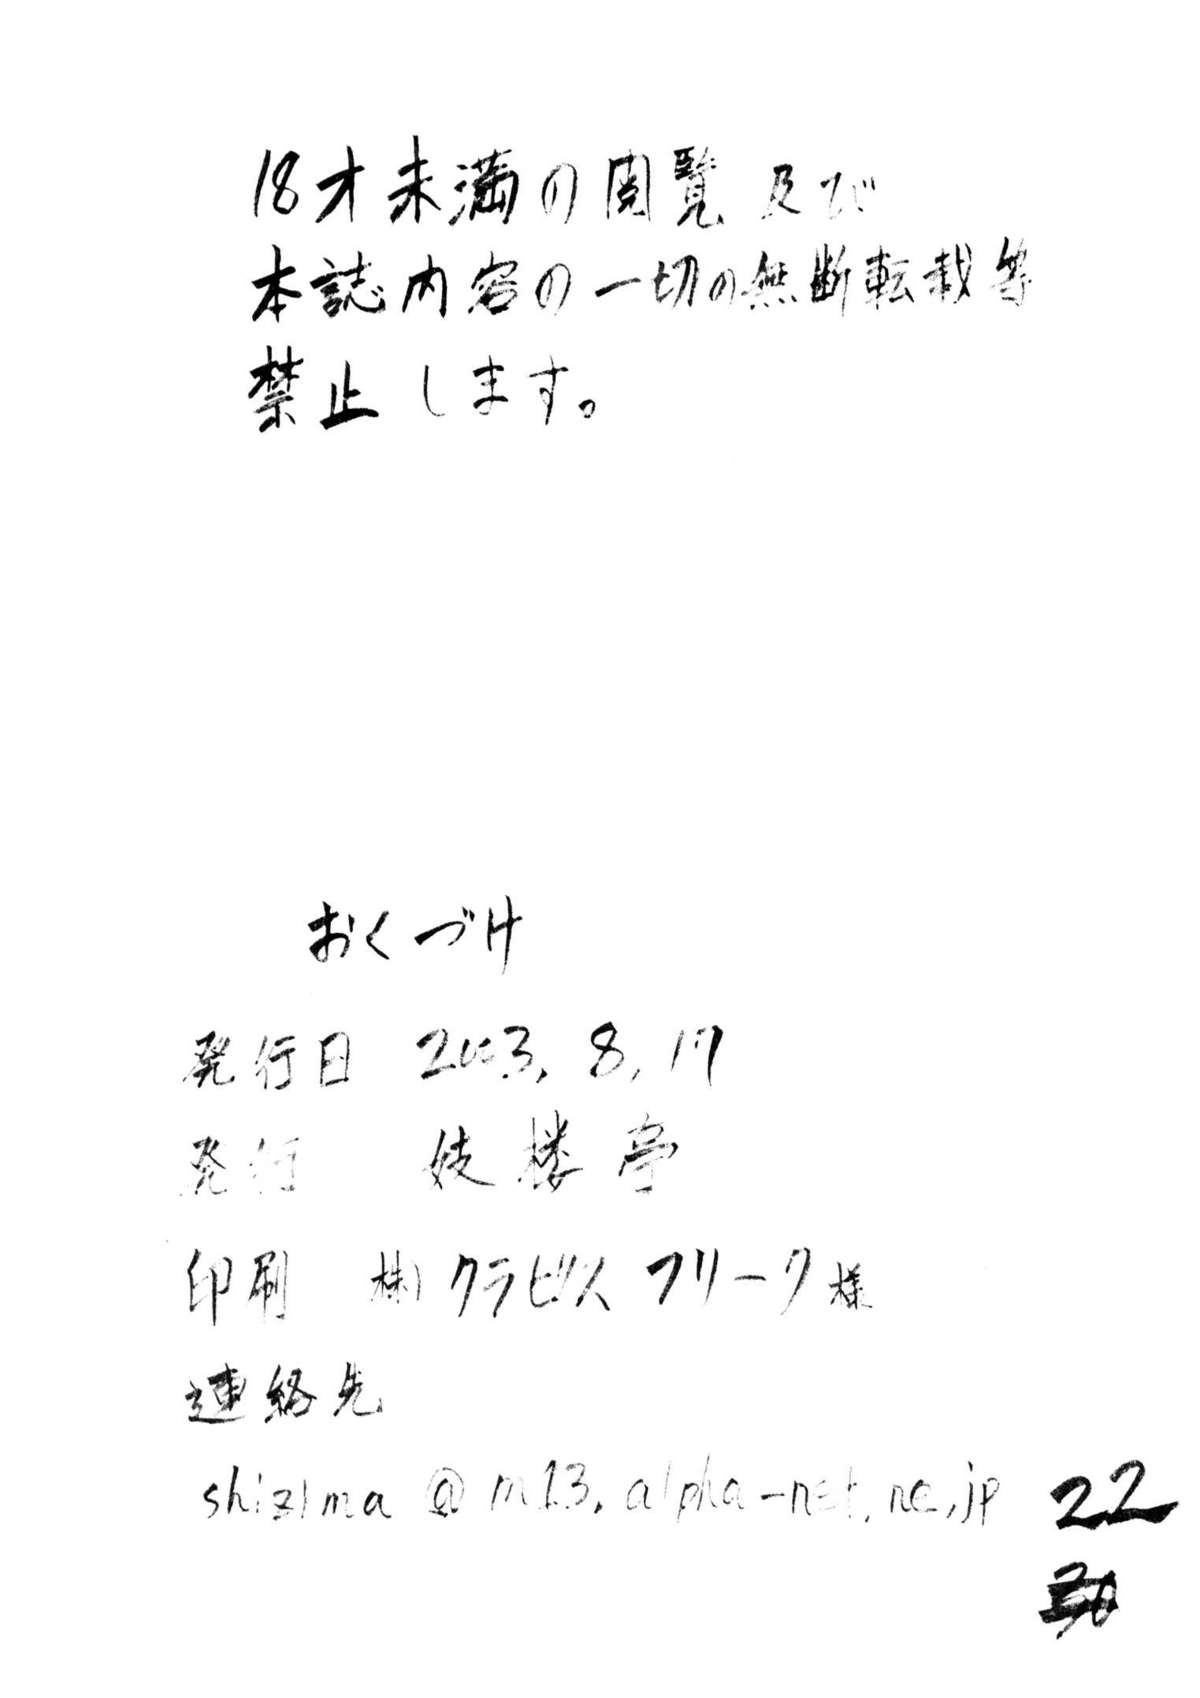 18才未満の閲覧及び
本誌内容の一切の無断転載等
禁止します。
おくづけ
発行日 2003.8.17
発行 妓楼亭
印刷 株)クラビズムフリーク様
連絡先
shizima@m13.alpha-net.ne.jp
22